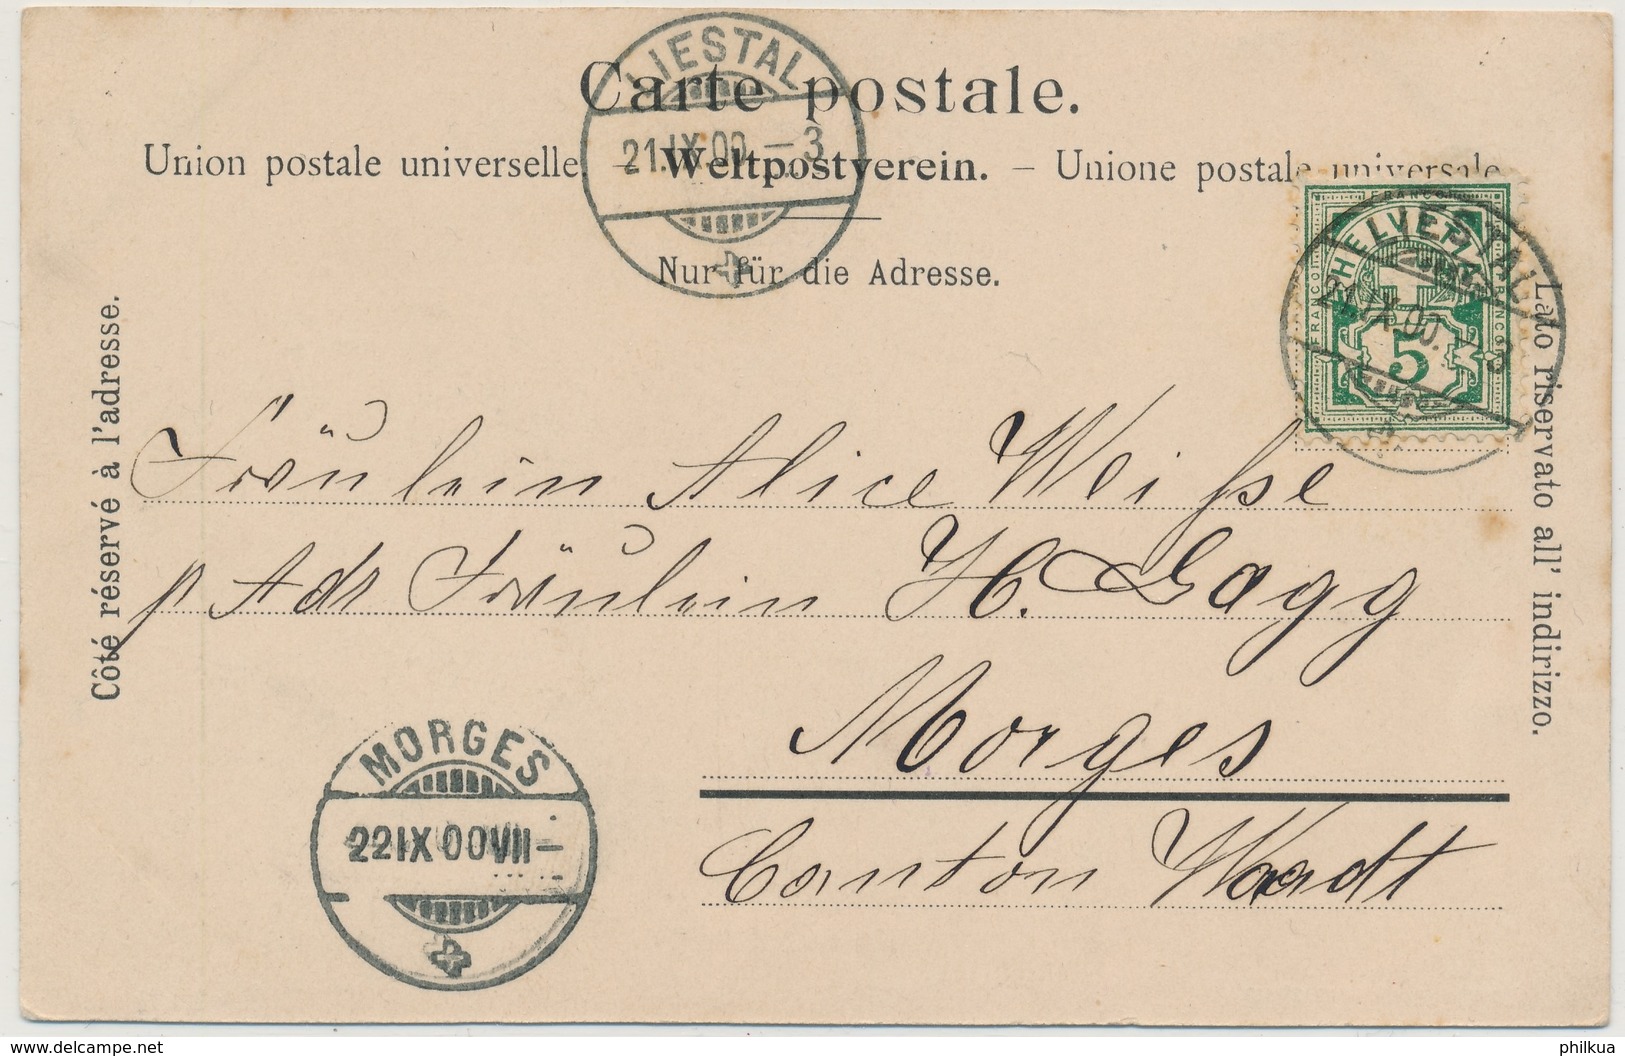 Carte postale.
Union postale universelle. – Weltpostverein. – Unione postale universale
Nur für die Adresse.
Côté réservé à l'adresse.
Lato riservato all' indirizzo.
LIESTAL
21.IX.00.–3
FRANCO
HELVETIA
FRANCO
FRANCO
5
21.IX.00.–3
Fräulein Alice Weihse
p Adr Fräulein H. Gagg
Morges
Canton Waadt
MORGES
22 IX 00 VII–
delcampe.net
philkua